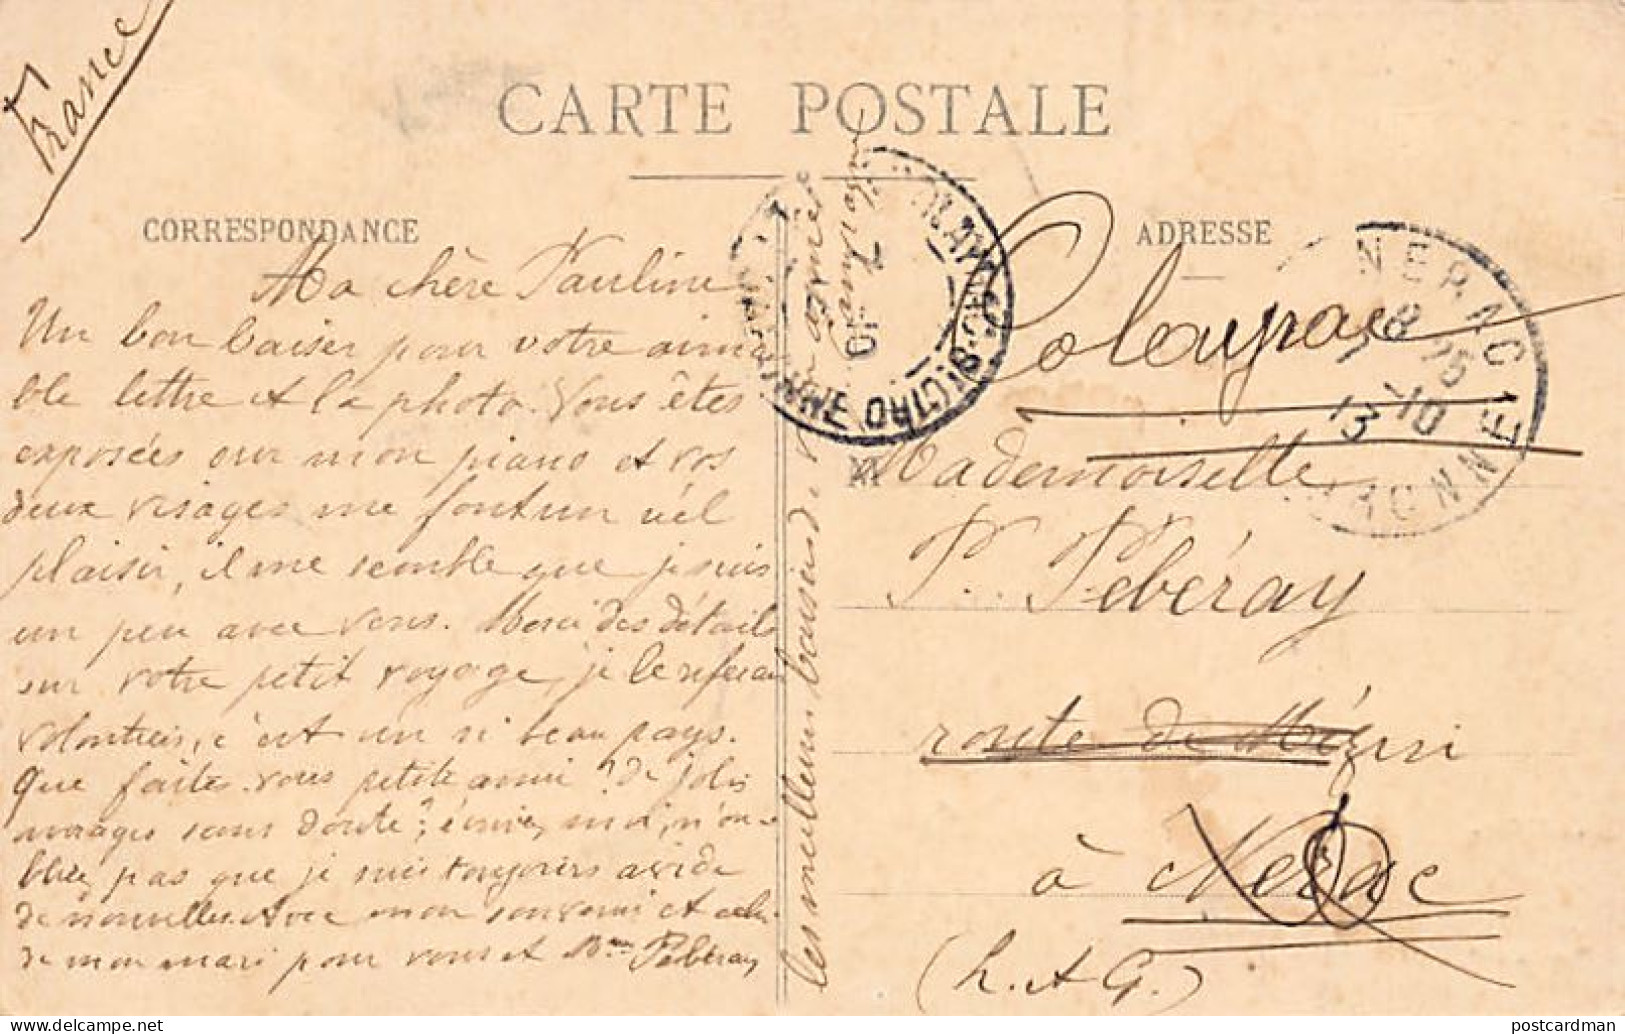 France
CARTE POSTALE
CORRESPONDANCE
ADRESSE
Ma chère Pauline
Un bon baiser pour votre aima
ble lettre et la photo. Vous êtes
exposées sur mon piano et vos
deux visages me font un réel
plaisir, il me semble que je suis
un peu avec vous. Merci des détails
sur votre petit voyage, je le referai
volontiers, c'est un si beau pays.
Que faites-vous petite amie? de jolis
ouvrages sans doute?, écrivez moi, n'ou-
bliez pas que je suis toujours avide
de nouvelles. Avec mon souvenir et celui
de mon mari pour vous et Mme Pébéray
les meilleurs baisers de v
Colayrac
Mademoiselle
P. Pébéray
route de Mézin
à Nérac
(L. et G.)
COLAYRAC-ST-CIRQ
NERAC
LOT-ET-GARONNE
8 25
7 -10
13
postcardman